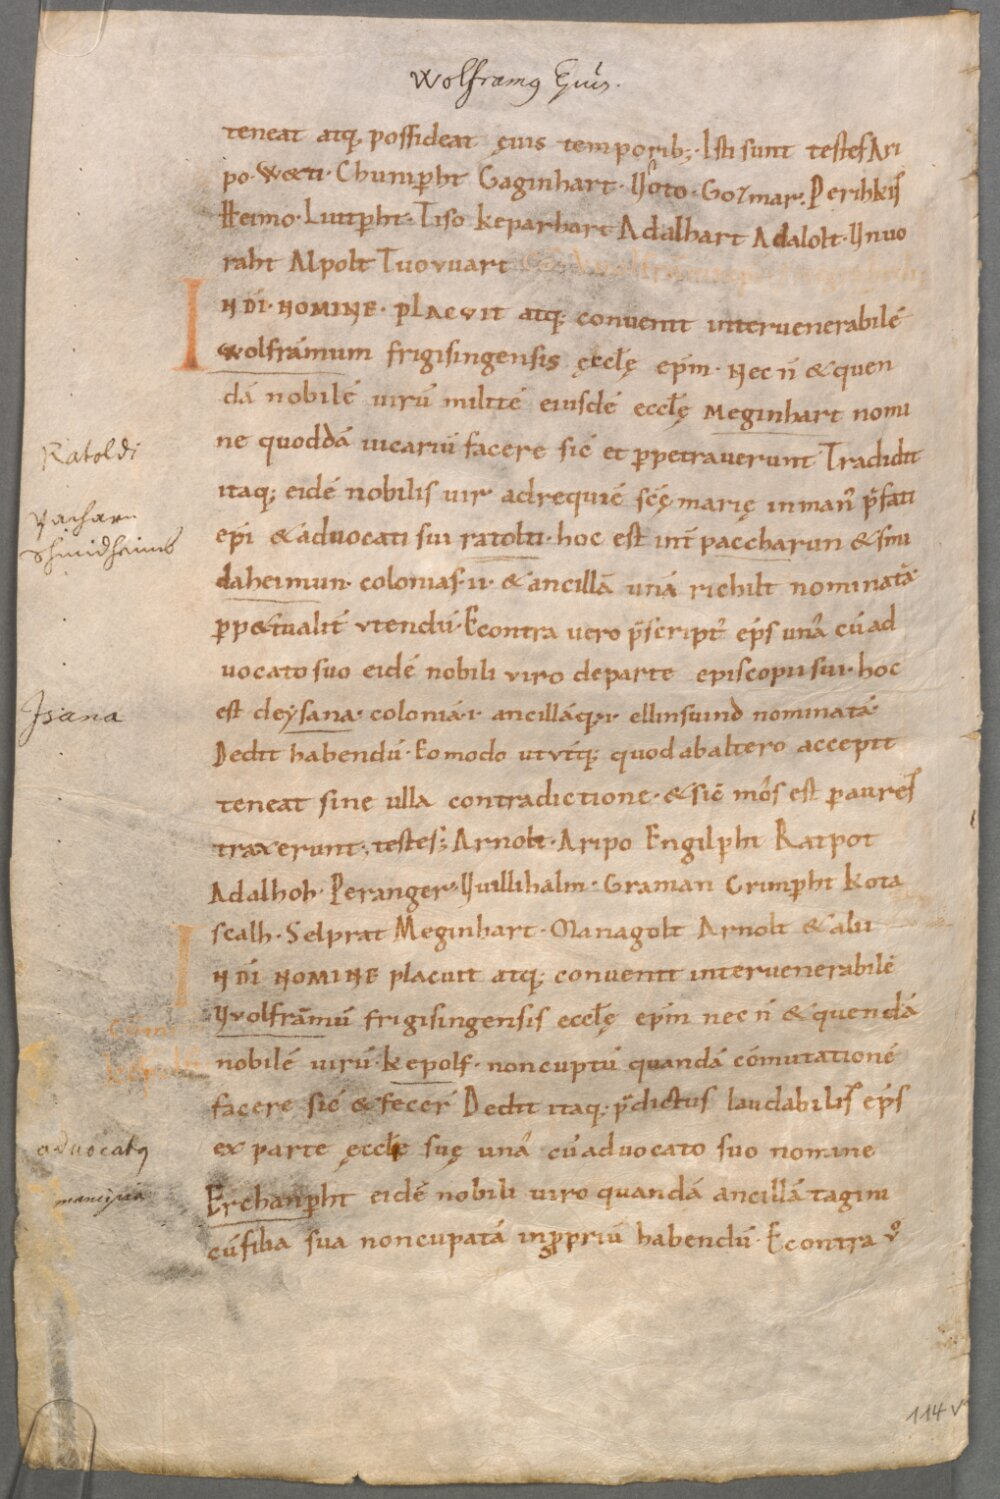 Wolframꝰ Epūs.
teneat atq; possideat ęuis temporib;. Isti sunt testes Ari
po. Weti. Chunip̄ht Gaginhart. Uuoto. Gozmar. Perihkis̄
Heimo. Liutp̄ht. Tiso keparhart Adalhart Adalolt. Uuuo
raht Alpolt Tuovuart
IN DĪ. NOMINE. placvit atq; conuenit inter uenerabilē
wolfrāmum frigisingensis ęccłę ep̄m. Nec ñ & quen
dā nobilē uirū militē eiusdē eccłę Meginhart nomi
ne quoddā uicariū facere sic̄ et ꝑpetrauerunt Tradidit
itaq; eidē nobilis uir ad requiē sc̄ę marię in man᷒ p̄fati
ep̄i & aduocati sui ratolti. hoc est int̄ paccharun & smi
daheimun. colonias. ii. & ancillā unā richilt nominatā
ꝑp&ualit̄ vtendū. Econtra uero p̄script᷒ ep̄s unā cū ad
uocato suo eidē nobili viro de parte episcopii sui. hoc
est deysana. coloniā. i. ancillāq; i. ellinsuind nominatā.
Dedit habendū. Eo modo ut vtq; quod ab altero accepit
teneat sine ulla contradictione. & sic̄ mōs est ꝑ aures
traxerunt; testes; Arnolt. Aripo Engilp̄ht Ratpot
Adalhoh. Peranger. Uuillihalm. Graman Crimp̄ht kota
scalh. Selprat Meginhart. Managolt Arnolt & alii
IN DĪ NOMINE placuit atq; conuenit inter uenerabilē
Uvolfrāmū frigisingensis eccłę ep̄m nec ñ & quendā
nobilē uirū. kepolf. noncuptū quandā cōmutationē
facere sic̄ & fecer̄ Dedit itaq; p̄dictus laudabilis ep̄s
ex parte ęccłę suę unā cū aduocato suo nomine
Erchanp̄ht eidē nobili uiro quandā ancillā tagini
cū filia sua noncupatā in ꝓpriū habendū. Econtra vº
Ratoldi
Pacharn
Shmidhaims
Isana
advocatꝰ
mancipia
114 v